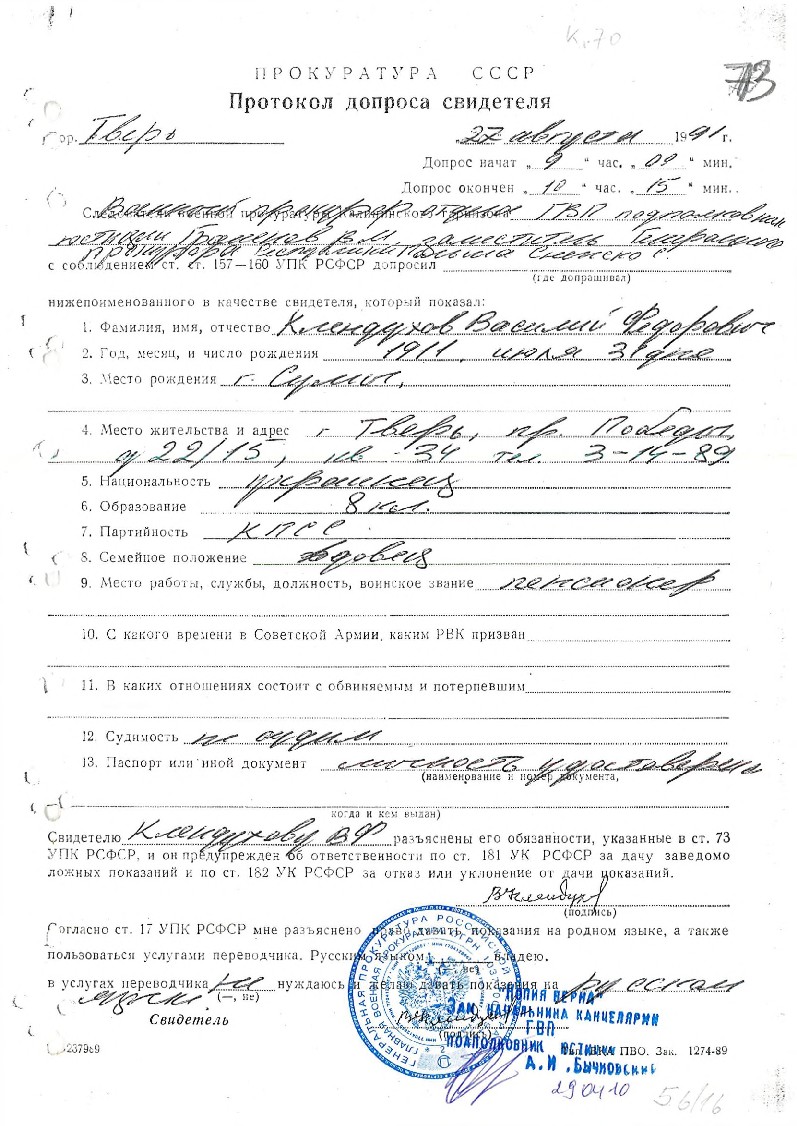 К. 70
73
ПРОКУРАТУРА СССР
Протокол допроса свидетеля
гор. Тверь „27" августа 1991 г.
Допрос начат „ 9 " час. „ 09 " мин.
Допрос окончен „ 10 " час. „ 15 " мин.
Военный прокурор отдела ГВП подполковник
Следователь военной прокуратуры Калининского гарнизона
юстиции В.М., заместитель Генерального
прокурора Республики Польша Снежко С
с соблюдением ст. ст. 157—160 УПК РСФСР допросил
(где допрашивал)
нижепоименованного в качестве свидетеля, который показал:
1. Фамилия, имя, отчество Клендухов Василий Федорович
2. Год, месяц, и число рождения 1911, июля 3 дня
3. Место рождения г. Сумы,
4. Место жительства и адрес г Тверь, пр. Победы,
д 22/15, кв 34 тел. 3-14-89
5. Национальность украинец
6. Образование 8 кл.
7. Партийность КПСС
8. Семейное положение вдовец
9. Место работы, службы, должность, воинское звание пенсионер
10. С какого времени в Советской Армии, каким РВК призван
11. В каких отношениях состоит с обвиняемым и потерпевшим
12. Судимость не судим
13. Паспорт или иной документ личность удостоверена
(наименование и номер документа,
когда и кем выдан)
Свидетелю Клендухову В Ф разъяснены его обязанности, указанные в ст. 73
УПК РСФСР, и он предупрежден об ответственности по ст. 181 УК РСФСР за дачу заведомо
ложных показаний и по ст. 182 УК РСФСР за отказ или уклонение от дачи показаний.
ВКлендухов
(подпись)
Согласно ст. 17 УПК РСФСР мне разъяснено право давать показания на родном языке, а также
пользоваться услугами переводчика. Русским языком владею.
(—, не)
в услугах переводчика не нуждаюсь и желаю давать показания на русском
языке.
(—, не)
Свидетель
(подпись)
ГЕНЕРАЛЬНАЯ ПРОКУРАТУРА РОССИЙСКОЙ
ГЛАВНАЯ ВОЕННАЯ ПРОКУРАТУРА ОГРН
„КОПИЯ ВЕРНА"
ЗАМ. НАЧАЛЬНИКА КАНЦЕЛЯРИИ
ГВП
ПОДПОЛКОВНИК ЮСТИЦИИ
А.И. БЫЧКОВСКИЙ
237989
ПВО. Зак. 1274-89
29 04 10
56/16